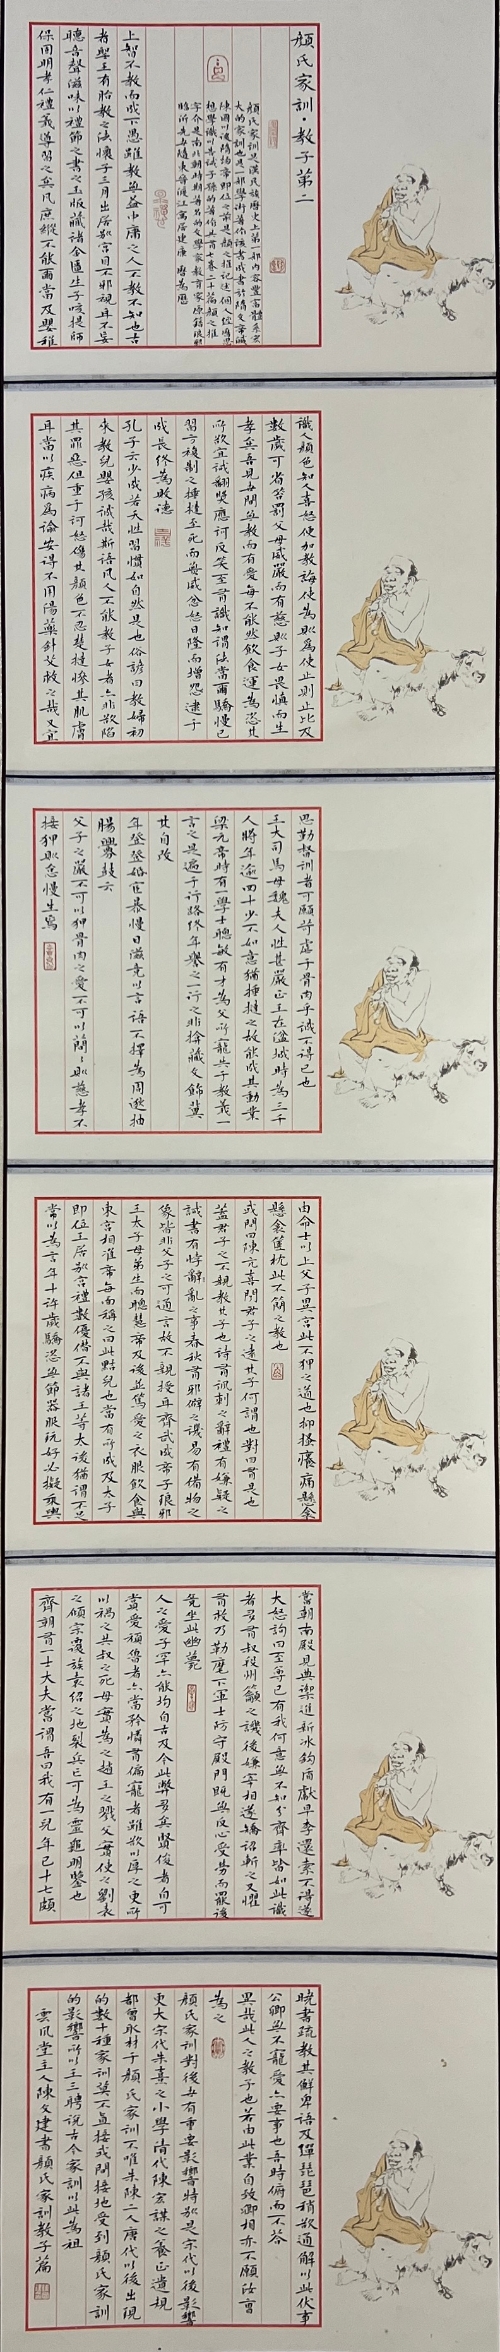 顏氏家訓·教子第二
顏氏家訓是漢民族歷史上第一部內容豐富體系宏
大的家訓也是一部學術著作該書成書於隋文帝滅
陳國以後隋煬帝即位之前是顏之推記述個人經歷思
想學識以告誡子孫的著作共有七卷二十篇顏之推
字介是南北朝時期著名的文學家教育家原籍琅邪
臨沂先世隨東晉渡江寓居建康
上智不教而成下愚雖教無益中庸之人不教不知也古
者聖王有胎教之法懷子三月出居別宮目不邪視耳不妄
聽音聲滋味以禮節之書之玉版藏諸金匱生子咳提師
保固明孝仁禮義導習之矣凡庶縱不能爾當及嬰稚
識人顏色知人喜怒便加教誨使為則為使止則止比及
數歲可省笞罰父母威嚴而有慈則子女畏慎而生
孝矣吾見世間無教而有愛每不能然飲食運為恣其
所欲宜誡翻獎應訶反笑至有識知謂法當爾驕慢已
習方複制之捶撻至死而無威忿怒日隆而增怨逮于
成長終為敗德
孔子云少成若天性習慣如自然是也俗諺曰教婦初
來教兒嬰孩誠哉斯語凡人不能教子女者亦非欲陷
其罪惡但重于訶怒傷其顏色不忍楚撻慘其肌膚
耳當以疾病為諭安得不用湯藥針艾救之哉又宜
思勤督訓者可願苛虐于骨肉乎誠不得已也
王大司馬母魏夫人性甚嚴正王在湓城時為三千
人將年逾四十少不如意猶捶撻之故能成其勳業
梁元帝時有一學士聰敏有才為父所寵失于教義一
言之是遍于行路終年譽之一行之非揜藏文飾冀
其自改
年登婚宦暴慢日滋竟以言語不擇為周逖抽
腸釁鼓云
父子之嚴不可以狎骨肉之愛不可以簡簡則慈孝不
接狎則怠慢生焉
由命士以上父子異宮此不狎之道也抑搔癢痛懸衾
懸衾篋枕此不簡之教也
或問曰陳亢喜聞君子之遠其子何謂也對曰有是也
蓋君子之不親教其子也詩有諷刺之辭禮有嫌疑之
誡書有悖亂之事春秋有邪僻之譏易有備物之
象皆非父子之可通言故不親授耳齊武成帝子琅邪
王太子母弟生而聰慧帝及後並篤愛之衣服飲食與
東宮相准帝每面稱之曰此黠兒也當有所成及太子
即位王居別宮禮數優僭不與諸王等太後猶謂不足
常以為言年十許歲驕恣無節器服玩好必擬乘輿
嘗朝南殿見典禦進新冰鉤盾獻早李還索不得遂
大怒訽曰至尊已有我何意無不知分齊率皆如此識
者多有叔段州籲之譏後嫌宰相遂矯詔斬之又懼
有救乃勒麾下軍士防守殿門既無反心受勞而罷後
竟坐此幽薨
人之愛子罕亦能均自古及今此弊多矣賢俊者自可
賞愛頑魯者亦當矜憐有偏寵者雖欲以厚之更所
以禍之共叔之死母實為之趙王之戮父實使之劉表
之傾宗覆族袁紹之地裂兵亡可為靈龜明鑒也
齊朝有一士大夫嘗謂吾曰我有一兒年已十七頗
曉書疏教其鮮卑語及彈琵琶稍欲通解以此伏事
公卿無不寵愛亦要事也吾時俯而不答
異哉此人之教子也若由此業自致卿相亦不願汝曹
為之
顏氏家訓對後世有重要影響特別是宋代以後影響
更大宋代朱熹之小學清代陳宏謀之養正遺規
都曾取材于顏氏家訓不唯朱陳二人唐代以後出現
的數十種家訓莫不直接或間接地受到顏氏家訓
的影響所以王三聘說古今家訓以此為祖
雲風堂主人陳文建書顏氏家訓教子篇